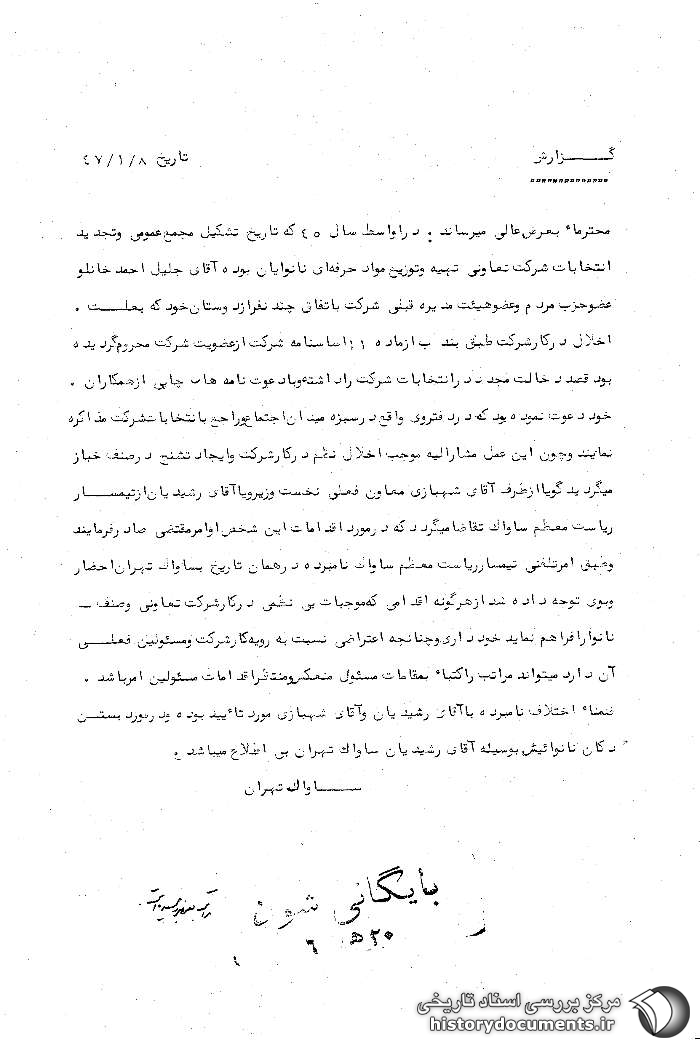 گـــزارش
تاریخ ۴۷/۱/۸
محترماً بعرض عالی میرساند : در اواسط سال ۴۵ که تاریخ تشکیل مجمع عمومی وتجدید
انتخابات شرکت تعاونی تهیه وتوزیع مواد حرفه‌ای نانوایان بوده آقای جلیل احمد خانلو
عضو حزب مردم وعضو هیئت مدیره قبلی شرکت باتفاق چند نفر از دوستان خود که بعلـت .
اخلال در کار شرکت طبق بند ب از ماده ۱۱ اساسنامه شرکت از عضویت شرکت محروم گردیده
بود قصد دخالت مجدد در انتخابات شرکت را داشته و با دعوت نامه های چاپی از همکاران .
خود دعوت نموده بود که در دفتر وی واقع در سبزه میدان اجتماع و راجع بانتخابات شرکت مذاکره
نمایند وچون این عمل مشارالیه موجب اخلال نظم در کار شرکت وایجاد تشنج در صنف خباز
میگردید گویا از طرف آقای شهبازی معاون فعلی نخست وزیر ویا آقای رشیدیان از تیمســار
ریاست معظم ساواک تقاضا میگردد که در مورد اقدامات این شخص اوامر مقتضی صادر فرمایند
وطبق امر تلفنی تیمسار ریاست معظم ساواک نامبرده در همان تاریخ بساواک تهران احضار
وبوی توجه داده شد از هرگونه اقدامی که موجبات بی نظمی در کار شرکت تعاونی وصنف ـ
نانوا را فراهم نماید خودداری وچنانچه اعتراضی نسبت به رویه کار شرکت ومسئولین فعلــی
آن دارد میتواند مراتب را کتباً بمقامات مسئول منعکس ومنتظر اقدامات مسئولین امر باشد .
ضمناً اختلاف نامبرده با آقای رشیدیان وآقای شهبازی مورد تائید بوده ودر مورد بستـن
دکان نانوائیش بوسیله آقای رشیدیان ساواک تهران بی اطلاع میباشد .
ســـاواک تهران
بایگانی شود
۲۰ هـ ۶
مرکز بررسی اسناد تاریخی
historydocuments.ir